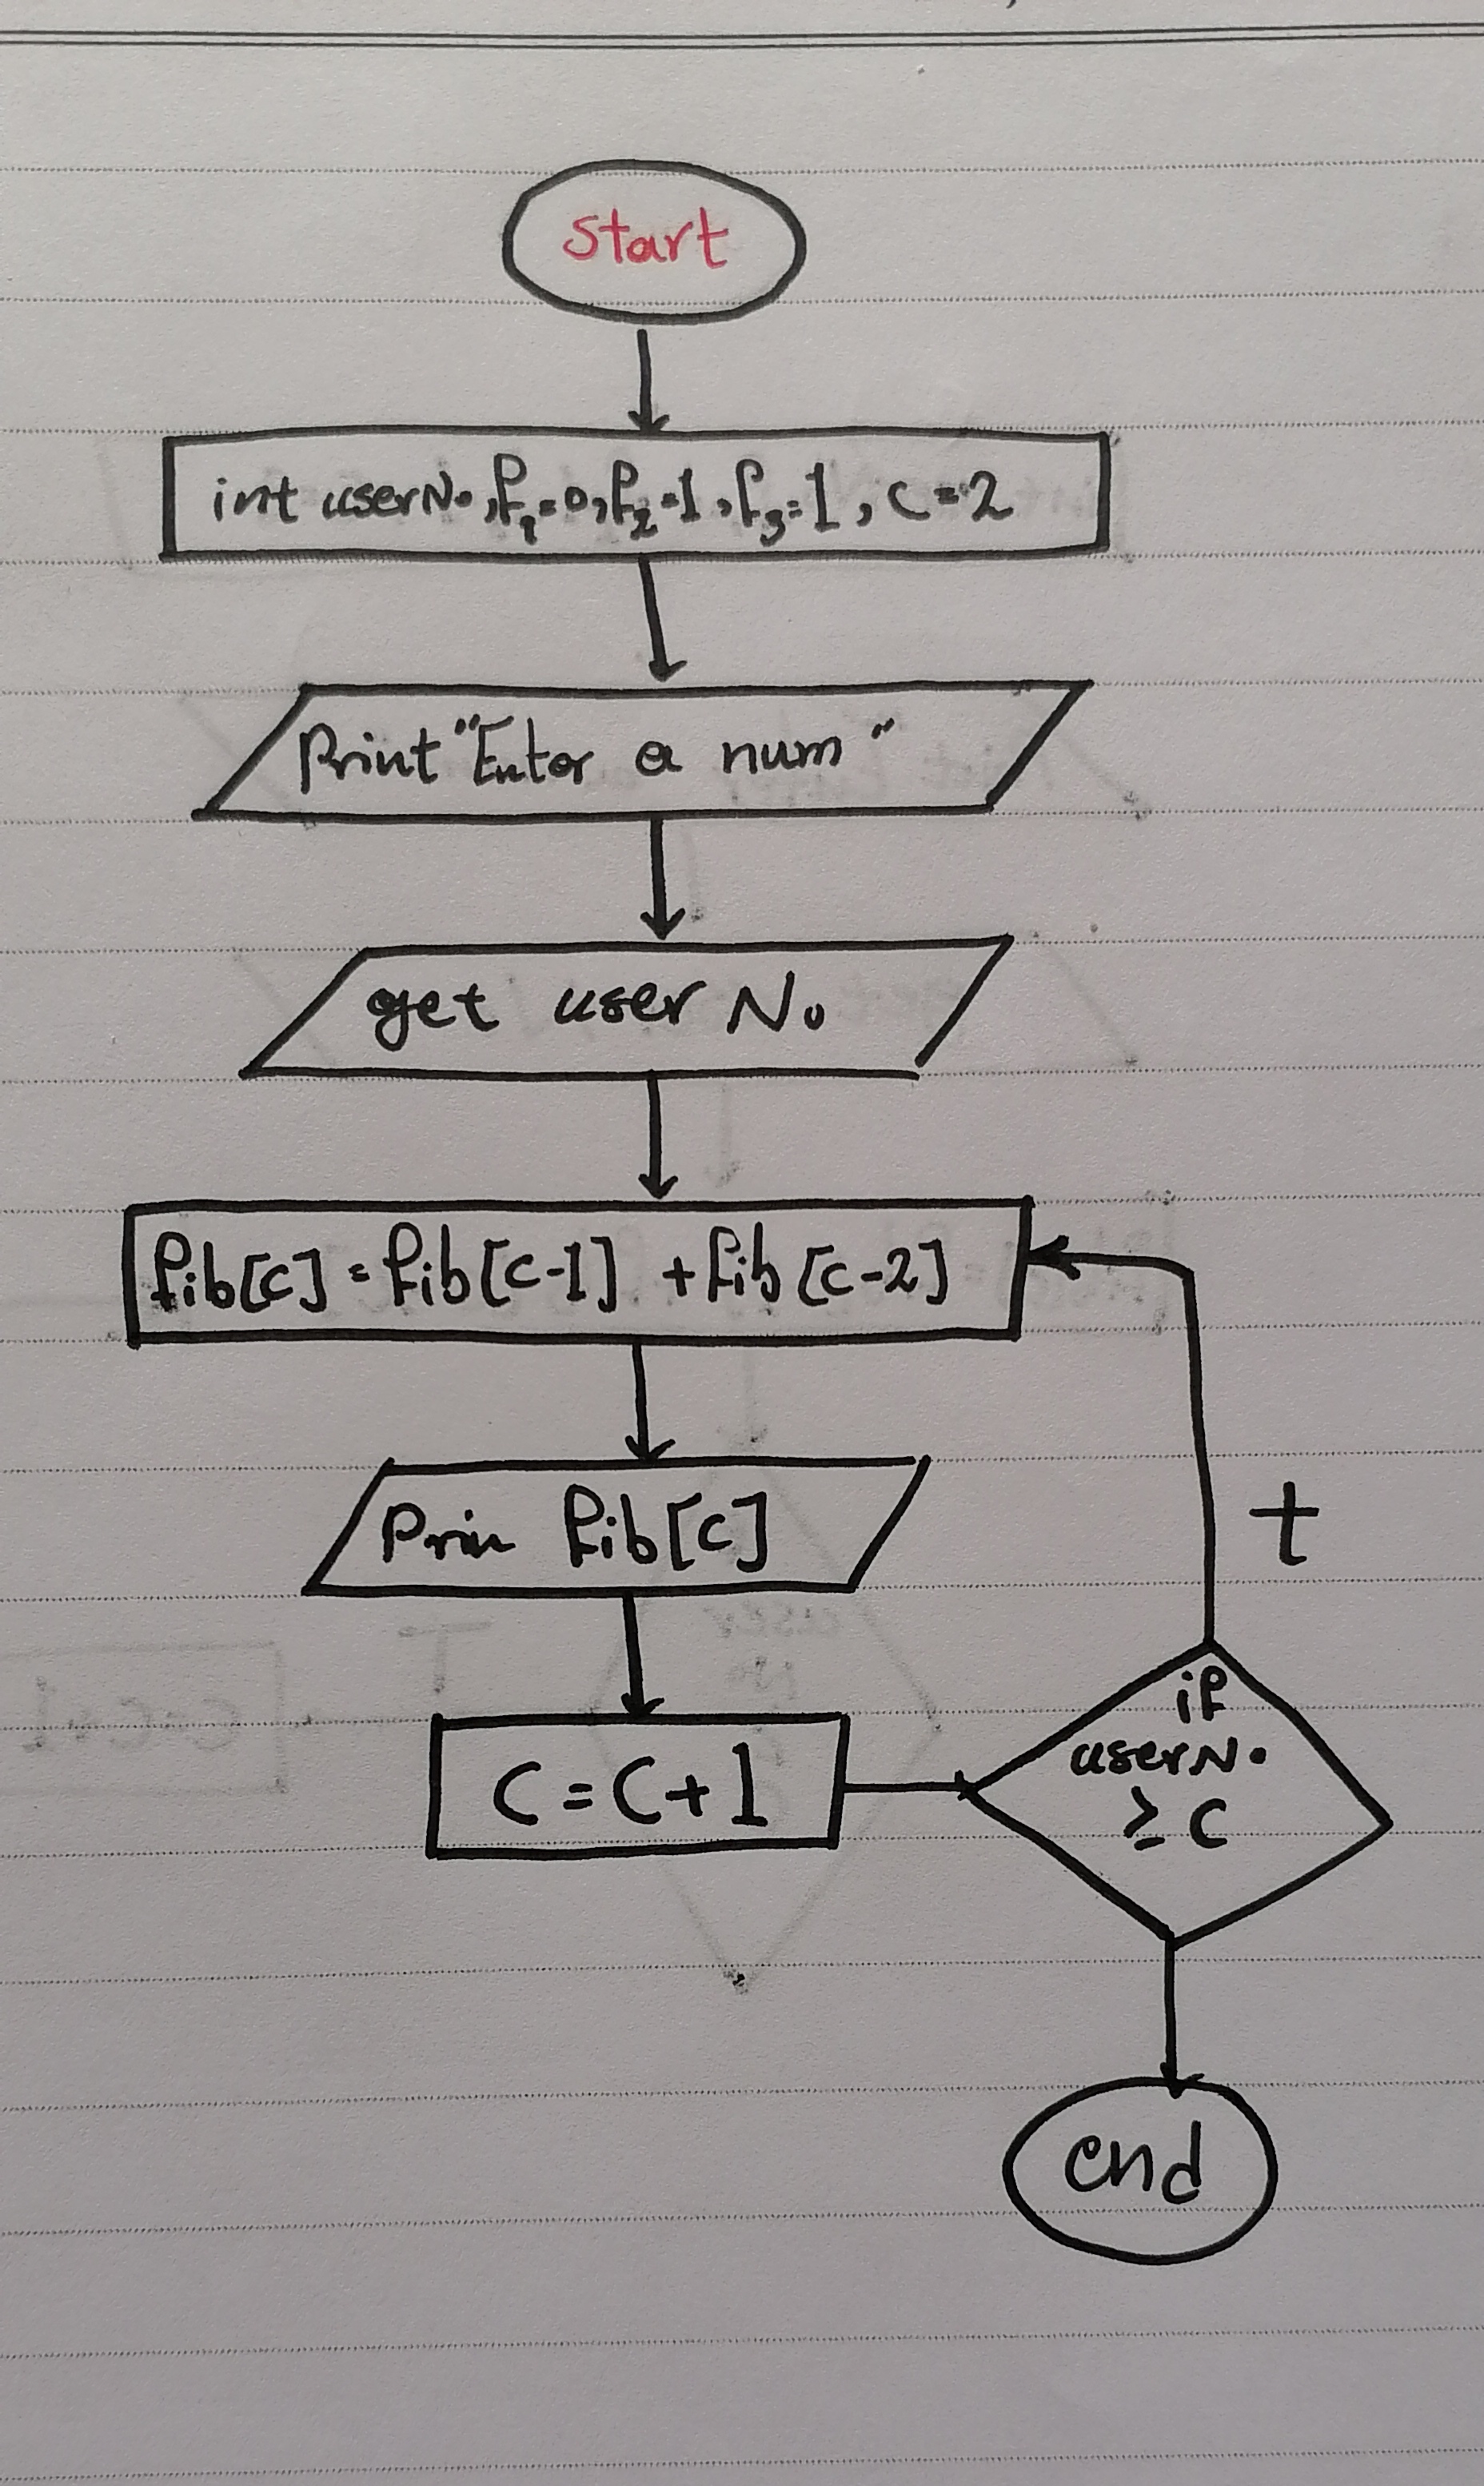 start
int userNo, f1=0, f2=1, f3=1, c=2
Print "Enter a num"
get user No
fib[c] = fib[c-1] + fib[c-2]
Prin fib[c]
t
C=C+1
if
userNo
≥ C
end